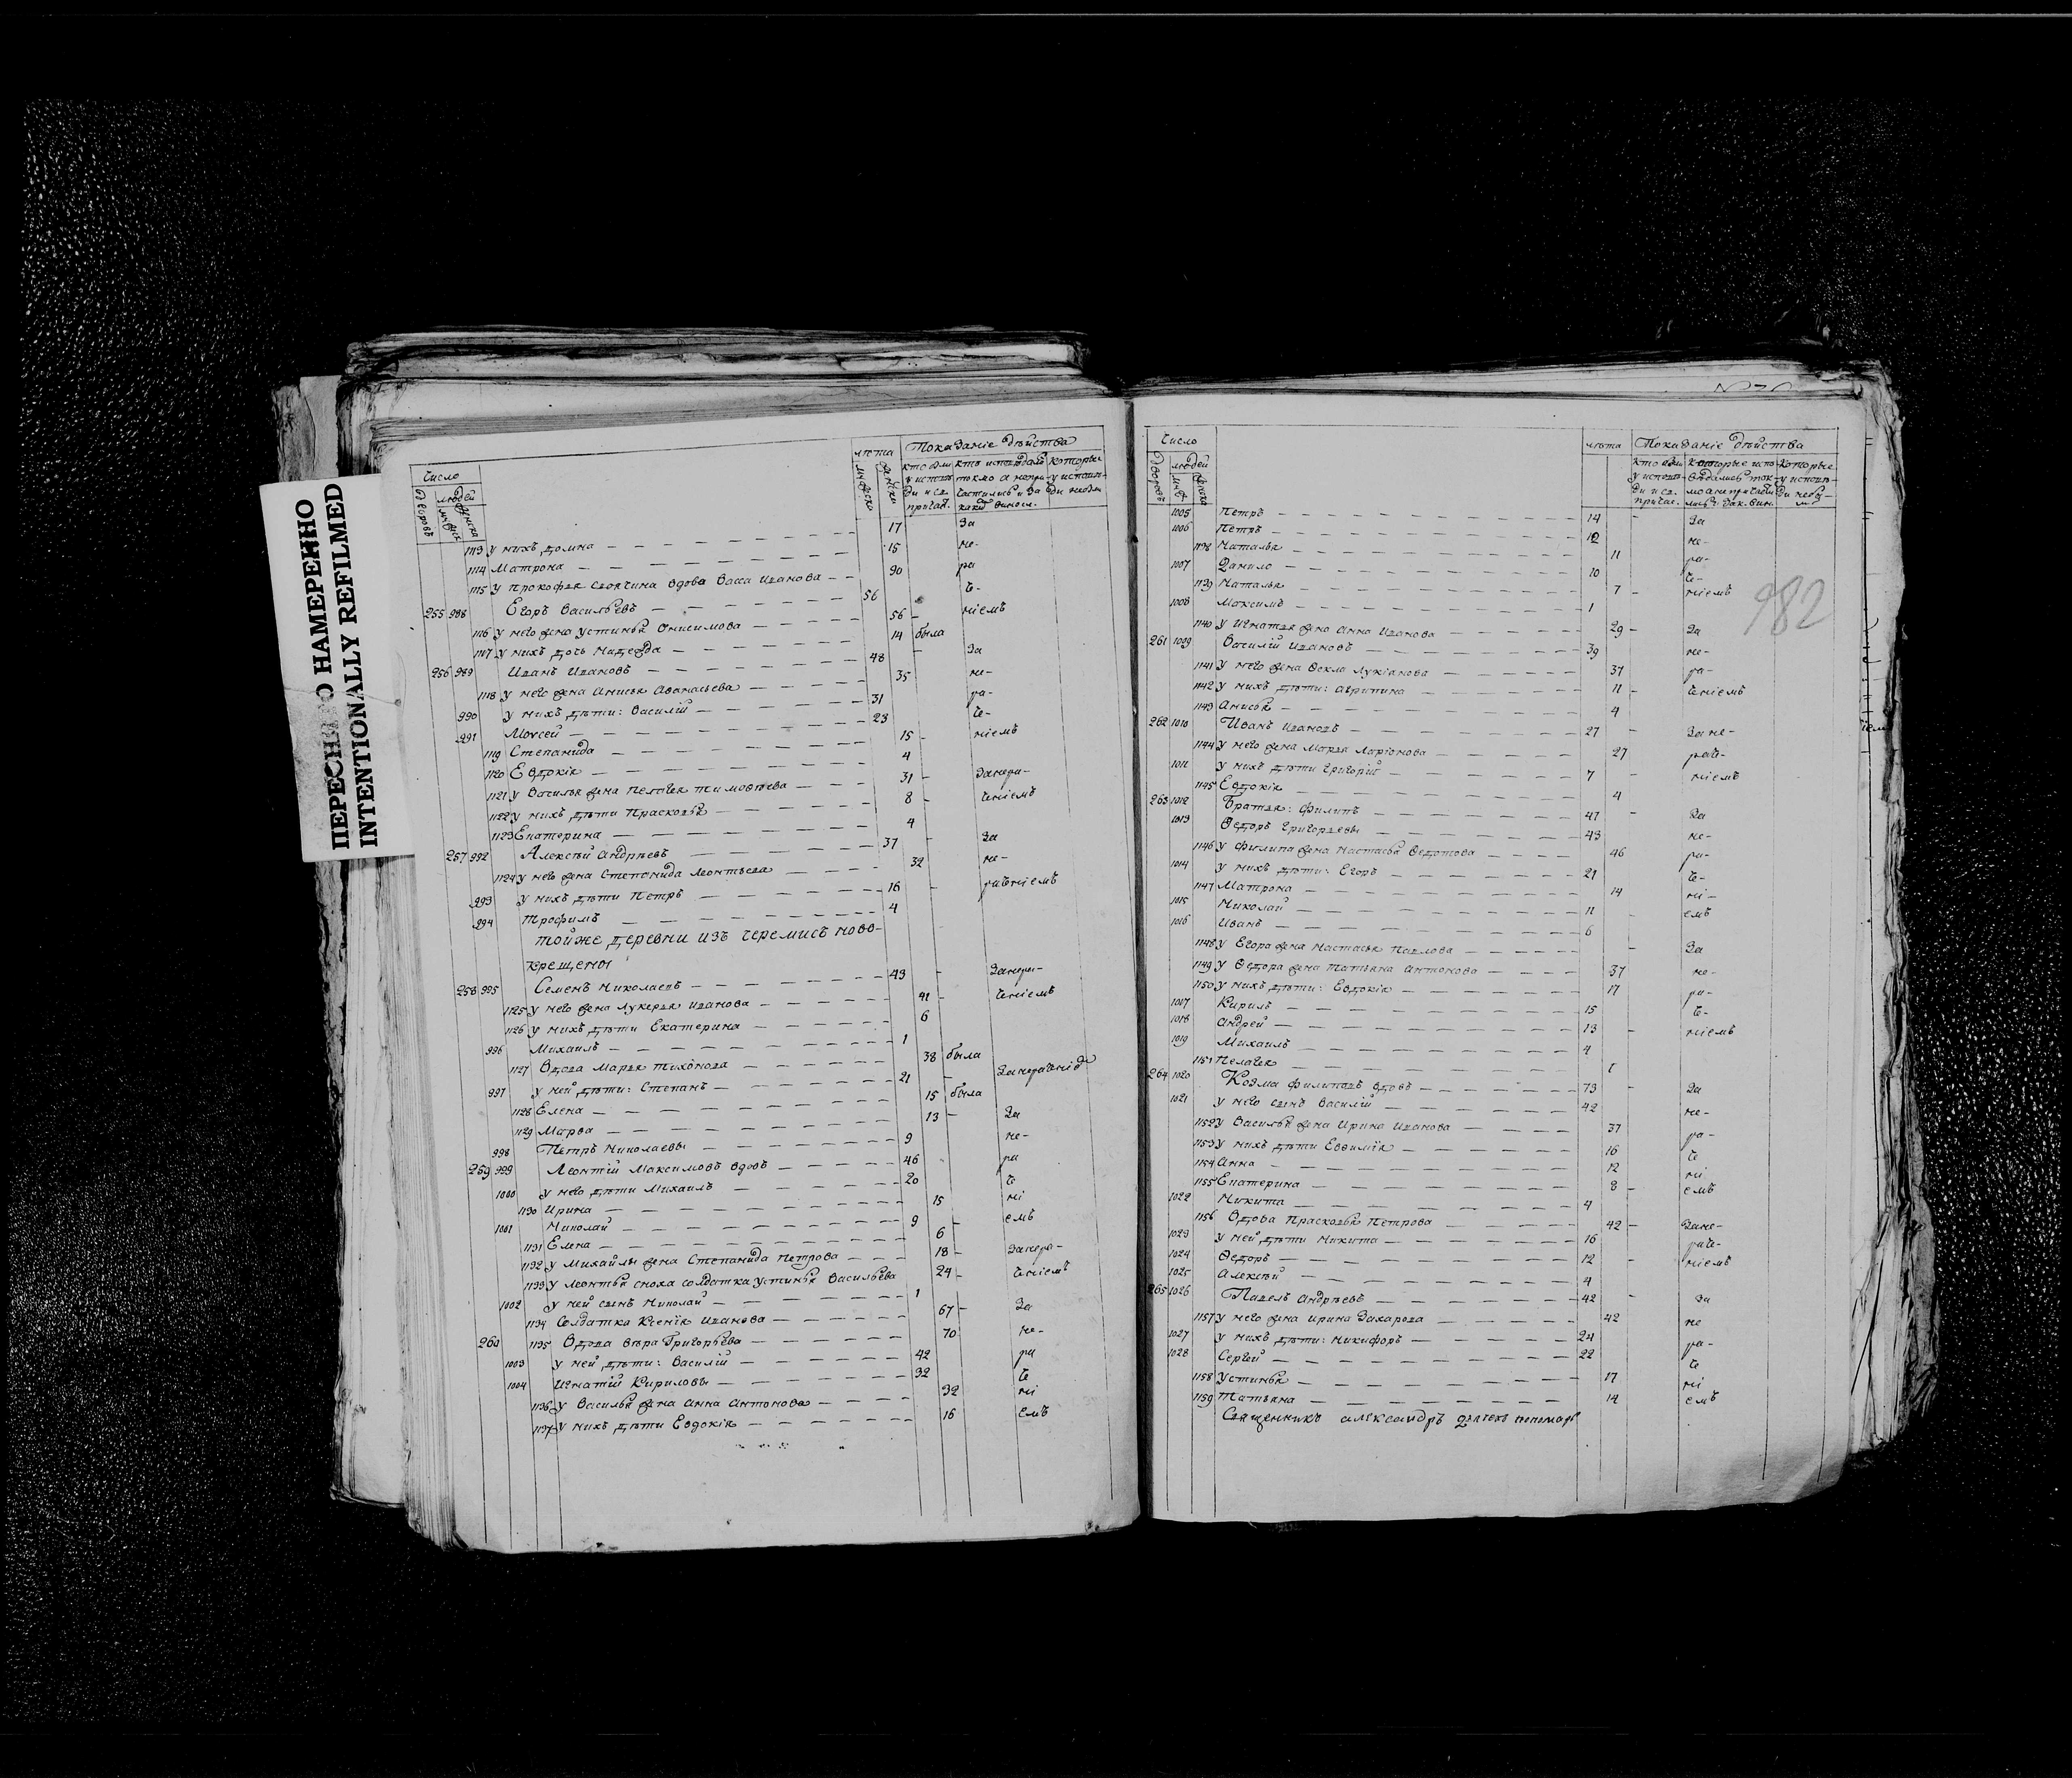 ПЕРЕСНЯТО НАМЕРЕННО
INTENTIONALLY REFILMED
Число
лѣта
Показаніе дѣйства
дворовъ
людей
1113 у нихъ домна 17 За
1114 Матрона 15 не-
1115 у прокофья своячина вдова Васса Иванова 90 ра
255 988 Егоръ Васильевъ 56 че-
1116 у него жена устинья Онисимова 56 ніемъ
1117 у нихъ дочь Надежда 14 была
256 989 Иванъ Ивановъ 48 За
1118 у него жена Анисья Аѳанасьева 35 не-
990 у нихъ дѣти: Василій 31 ра-
991 Моисей 23 че-
1119 Степанида 15 ніемъ
1120 Евдокія 4
1121 у Василья жена Пелагея тимоѳѣева 31 Занера-
1122 у нихъ дѣти Прасковья 8 ченіемъ
1123 Екатерина 4
257 992 Алексѣй Андрѣевъ 37 За
1124 у него жена Степанида Леонтьева 32 не-
993 у нихъ дѣти Петръ 16 рачніемъ
994 Трофимъ 4
тойже деревни изъ черемисъ ново-
крещены
258 995 Семенъ Николаевъ 43 Занера-
1125 у него жена Лукерья Иванова 41 ченіемъ
1126 у нихъ дѣти Екатерина 6
996 Михаилъ 1
1127 Вдова Марья тихонова 38 была
997 у ней дѣти: Степанъ 21
1128 Елена 15 была
1129 Марѳа 13 За
998 Петръ Николаевы 9 не-
259 999 Леонтій Максимовъ вдовъ 46 ра
1000 у него дѣти Михаилъ 20 че
1130 Ирина 15 ні
1001 Николай 9 емъ
1131 Елена 6
1132 у Михайлы жена Степанида Петрова 18 Занера-
1133 у Леонтья сноха солдатка устинья Васильева 24 ченіемъ
1002 у ней сынъ Николай 1
1134 Солдатка Ксенія Иванова 67 За
260 1135 Вдова Вѣра Григорьева 70 не-
1003 у ней дѣти: Василій 42 ра
1004 Игнатій Кириловы 32 че
1136 у Василья жена Анна Антонова 32 ні
1137 у нихъ дѣти Евдокія 16 емъ
Число
лѣта
Показаніе дѣйства
дворовъ
людей
1005 Петръ 14 За
1006 Петръ 12 не-
1138 Наталья 11 ра-
1007 Данило 10 че-
1139 Наталья 7 ніемъ
1008 Максимъ 1
1140 у Игнатья жена Анна Иванова 29 За
261 1009 Василій Ивановъ 39 не-
1141 у него жена Ѳекла Лукіанова 37 ра-
1142 у нихъ дѣти: Агрипина 11 ченіемъ
1143 Анисья 4
262 1010 Иванъ Ивановъ 27 Зане-
1144 у него жена Марья Ларіонова 27 раче-
1011 у нихъ дѣти Григорій 7 ніемъ
1145 Евдокія 4
263 1012 Братья: Филипъ 47 За
1013 Ѳедоръ Григорьевы 43 не-
1146 у Филипа жена Настасья Ѳедотова 46 ра-
1014 у нихъ дѣти: Егоръ 21 че-
1147 Матрона 14 ні-
1015 Николай 11 емъ
1016 Иванъ 6
1148 у Егора жена Настасья Павлова За
1149 у Ѳедора жена Татьяна Антонова 37 не-
1150 у нихъ дѣти: Евдокія 17 ра-
1017 Кирилъ 15 че-
1018 Андрей 13 ніемъ
1019 Михаилъ 4
1151 Пелагея 1
264 1020 Козма Филиповъ вдовъ 73 За
1021 у него сынъ Василій 42 не-
1152 у Василья жена Ирина Иванова 37 ра-
1153 у нихъ дѣти Евѳимія 16 че
1154 Анна 12 ні
1155 Екатерина 8 емъ
1022 Никита 4
1156 Вдова Прасковья Петрова 42 Зане-
1023 у ней дѣти Никита 16 раче-
1024 Ѳедоръ 12 ніемъ
1025 Алексѣй 4
265 1026 Павелъ Андрѣевъ 42 За
1157 у него жена Ирина Захарова 42 не
1027 у нихъ дѣти: Никифоръ 24 ра-
1028 Сергей 22 че
1158 Устинья 17 ні
1159 Татьяна 14 емъ
Священникъ александръ
982